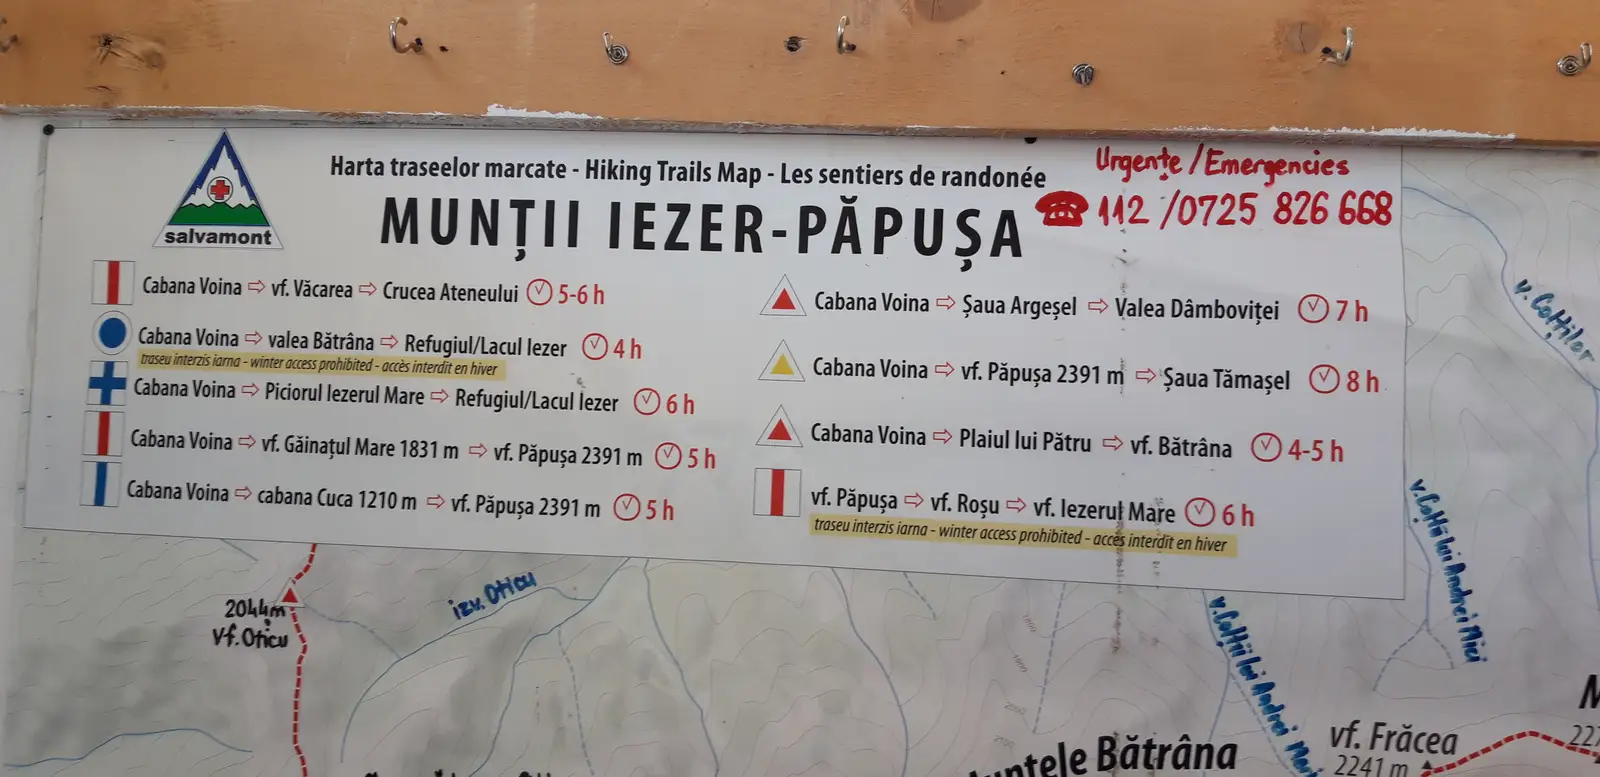 Harta traseelor marcate - Hiking Trails Map - Les sentiers de randonée
MUNȚII IEZER-PĂPUȘA
Urgențe/Emergencies
☎ 112 /0725 826 668
salvamont
Cabana Voina ⇨ vf. Văcarea ⇨ Crucea Ateneului 5-6 h
Cabana Voina ⇨ valea Bătrâna ⇨ Refugiul/Lacul Iezer 4 h
traseu interzis iarna - winter access prohibited - accès interdit en hiver
Cabana Voina ⇨ Piciorul Iezerul Mare ⇨ Refugiul/Lacul Iezer 6 h
Cabana Voina ⇨ vf. Găinațul Mare 1831 m ⇨ vf. Păpușa 2391 m 5 h
Cabana Voina ⇨ cabana Cuca 1210 m ⇨ vf. Păpușa 2391 m 5 h
Cabana Voina ⇨ Șaua Argeșel ⇨ Valea Dâmboviței 7 h
Cabana Voina ⇨ vf. Păpușa 2391 m ⇨ Șaua Tămașel 8 h
Cabana Voina ⇨ Plaiul lui Pătru ⇨ vf. Bătrâna 4-5 h
vf. Păpușa ⇨ vf. Roșu ⇨ vf. Iezerul Mare 6 h
traseu interzis iarna - winter access prohibited - accès interdit en hiver
v. Colților
v. Colții lui Andrei Mici
v. Colții lui Andrei Mari
izv. Oticu
2044m
Vf. Oticu
Bătrâna
vf. Frăcea
2241 m